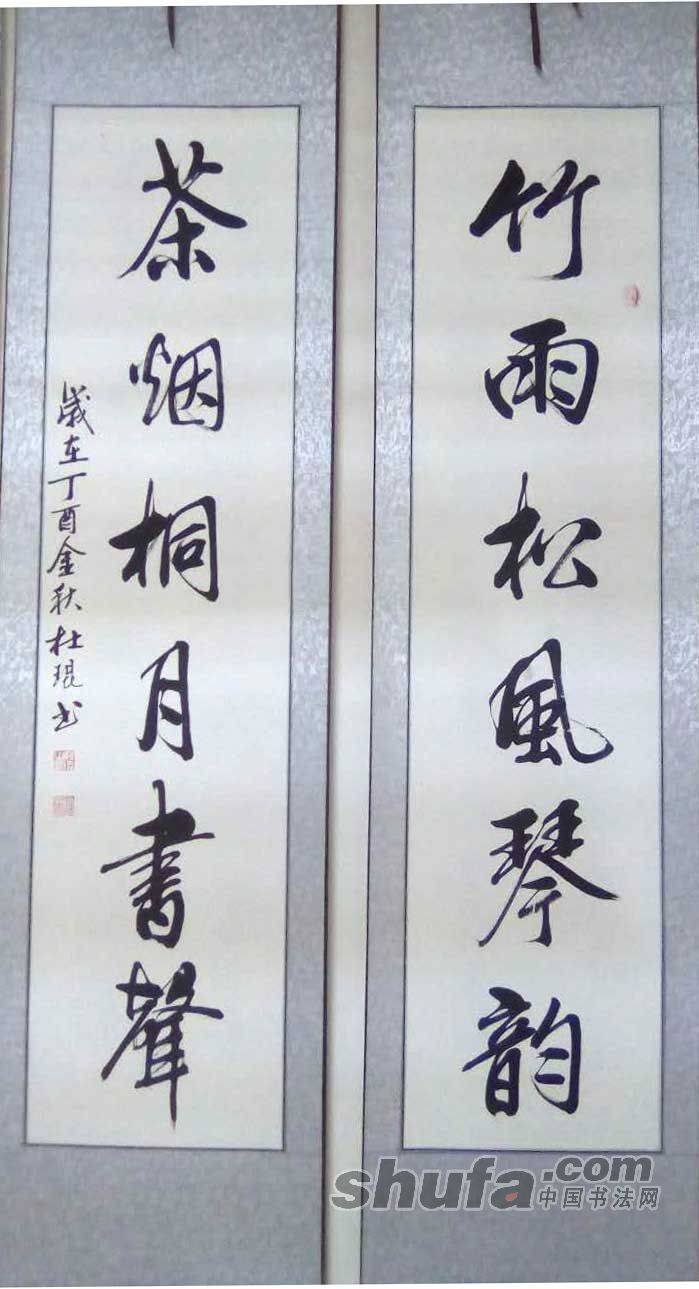 竹雨松風琴韵
茶烟桐月書聲
歲在丁酉金秋杜琨书
shufa.com
中国书法网